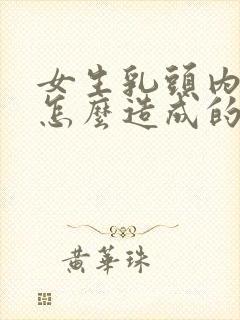 女生乳頭內
怎麼造成的
黃華珠